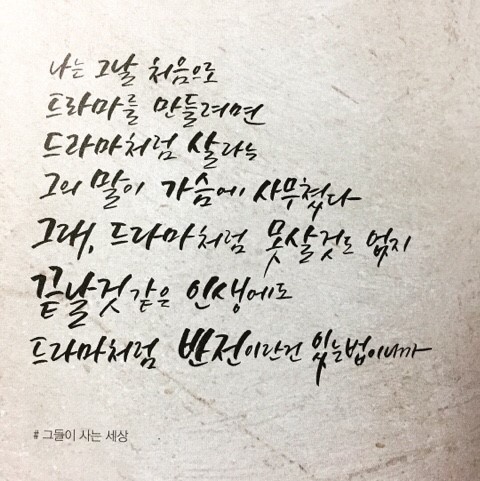 나는 그날 처음으로
드라마를 만들려면
드라마처럼 살라는
그의 말이 가슴에 사무쳤다
그래, 드라마처럼 못살것도 없지
끝날것 같은 인생에도
드라마처럼 반전이란건 있는법이니까
# 그들이 사는 세상